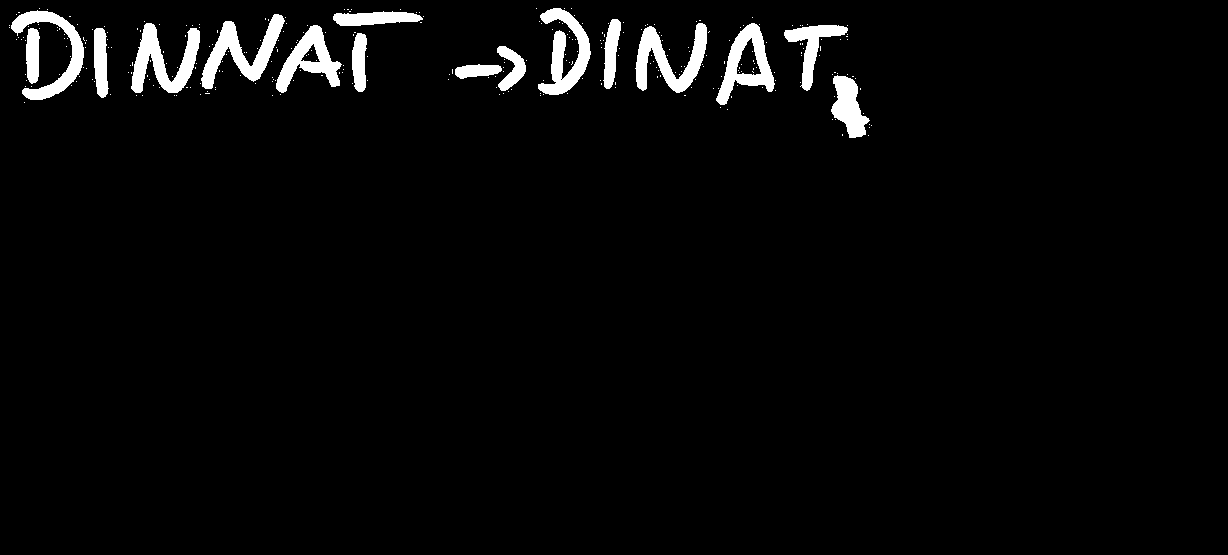 DINNAT → DINAT